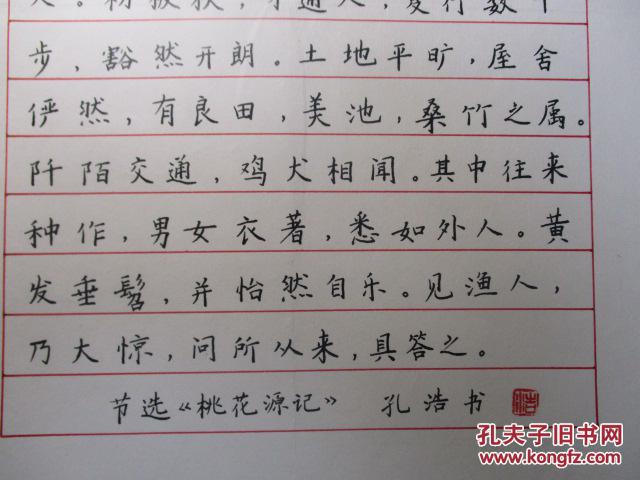 初极狭，才通人，复行数十
步，豁然开朗。土地平旷，屋舍
俨然，有良田，美池，桑竹之属。
阡陌交通，鸡犬相闻。其中往来
种作，男女衣著，悉如外人。黄
发垂髫，并怡然自乐。见渔人，
乃大惊，问所从来，具答之。
节选《桃花源记》 孔浩书
孔夫子旧书网
www.kongfz.com